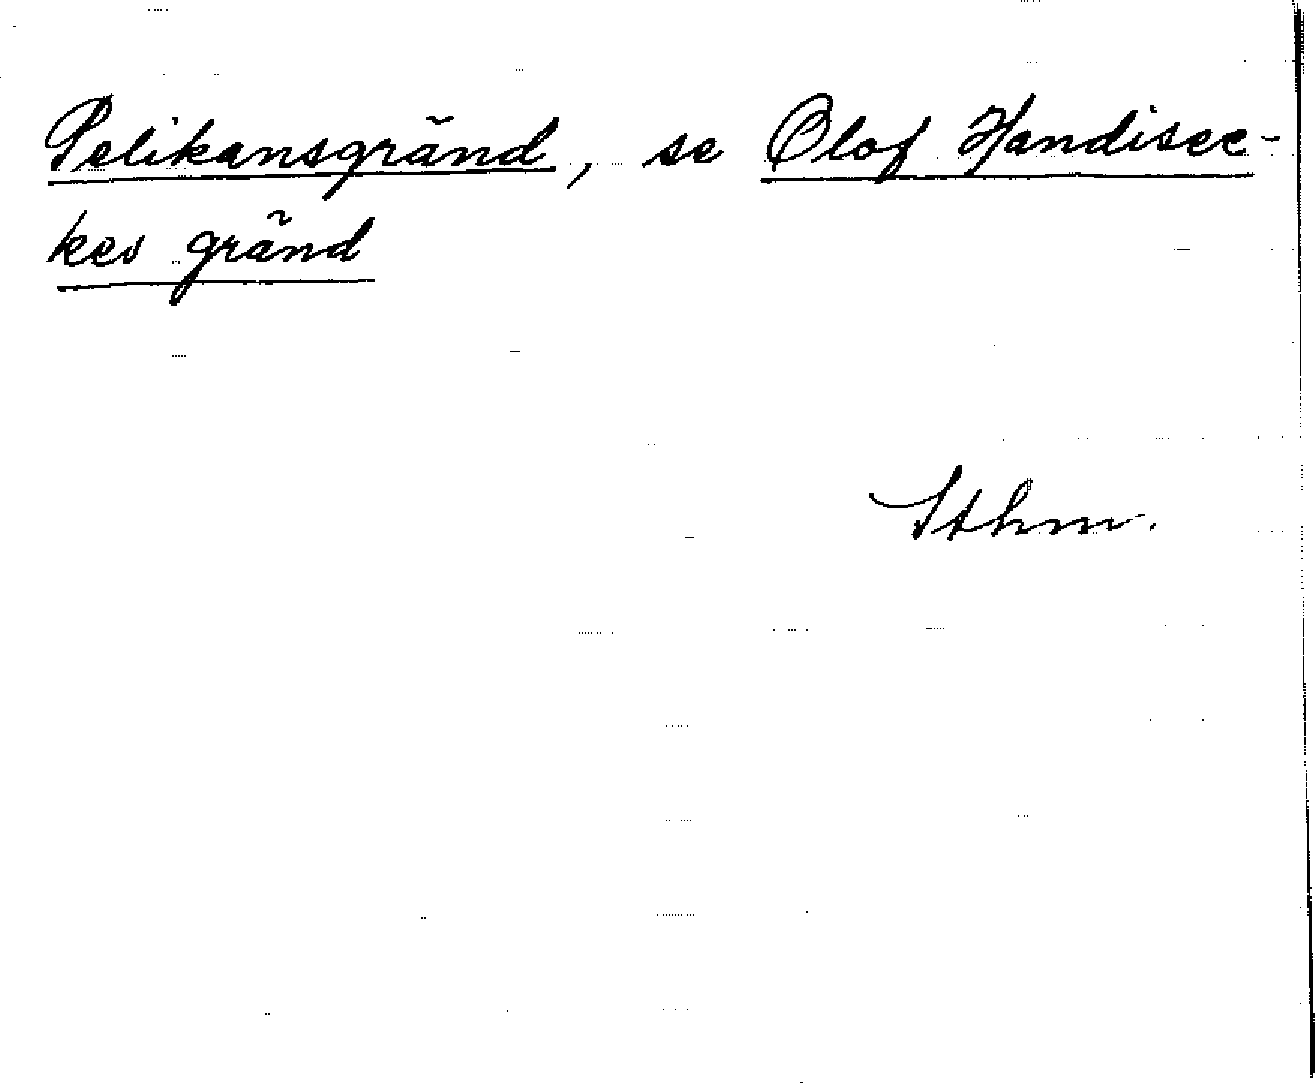 Pelikansgränd, se Olof Handisec-
kes gränd
Sthm.